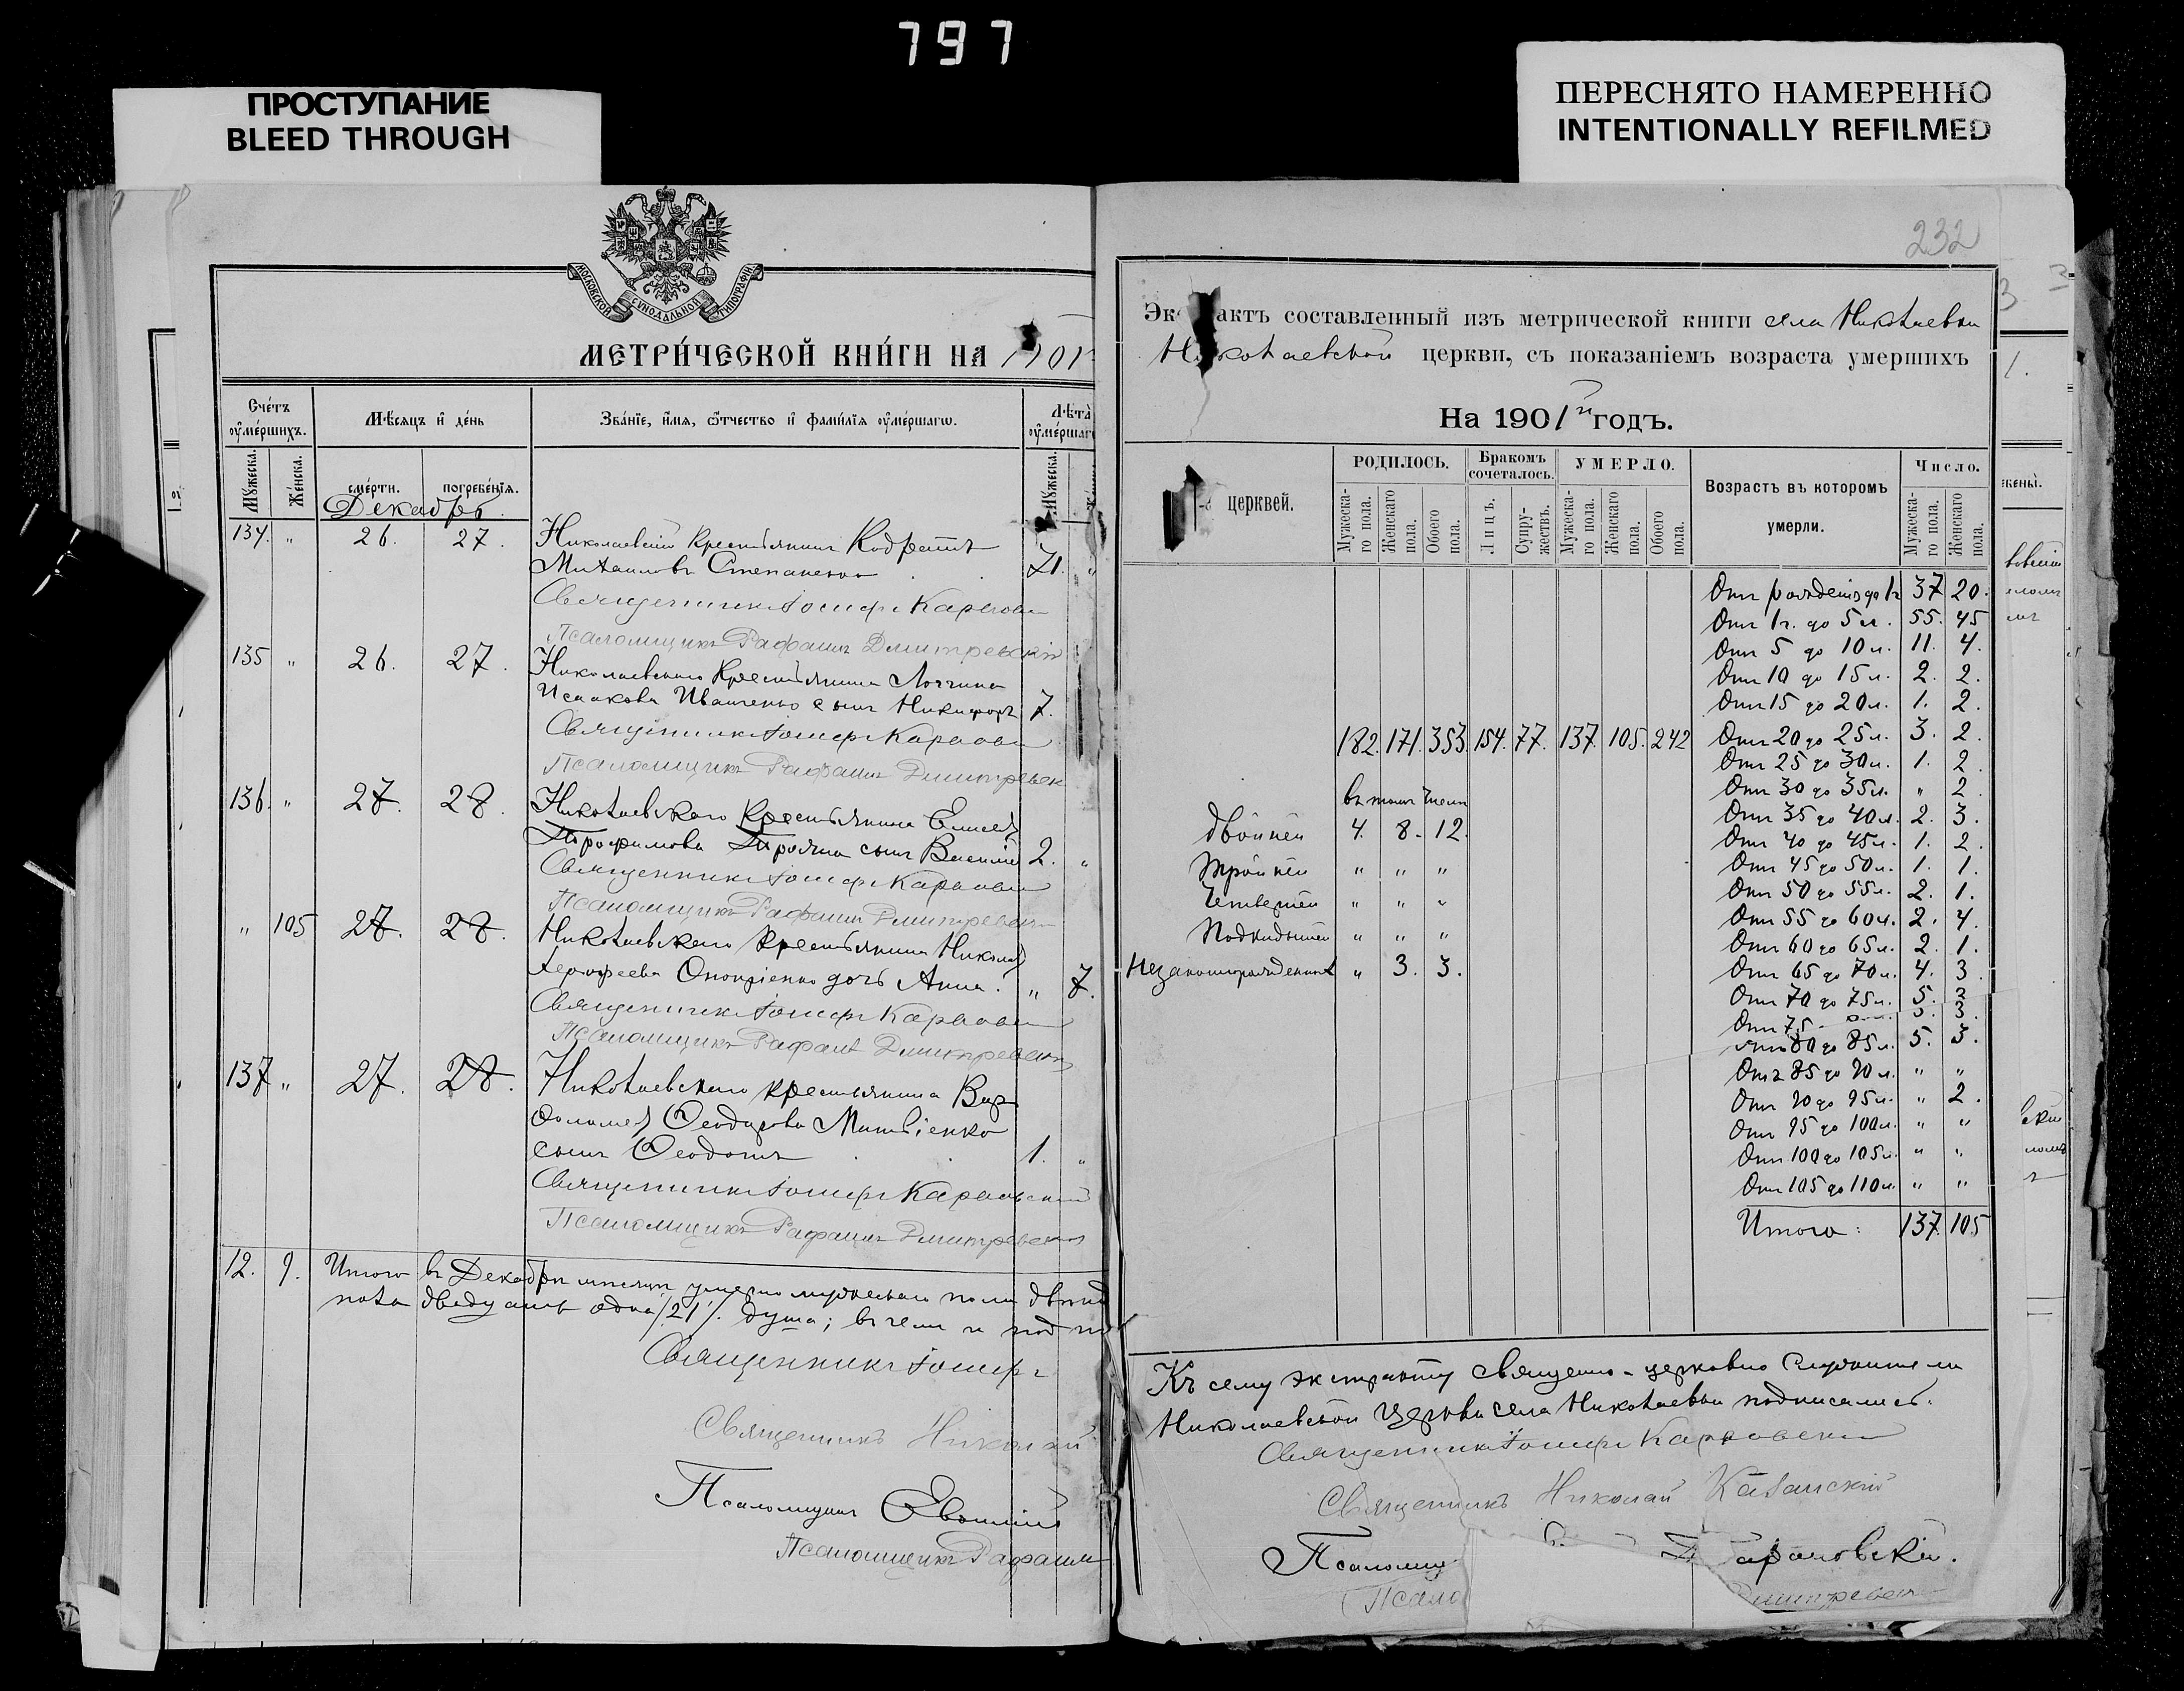 797
ПРОСТУПАНИЕ
BLEED THROUGH
ПЕРЕСНЯТО НАМЕРЕННО
INTENTIONALLY REFILMED
МОСКОВСКОЙ СѴНОДАЛЬНОЙ ТИПОГРАФІИ
МЕТРИ́ЧЕСКОЙ КНИ́ГИ НА 1901
Сче́тъ оу҆ме́ршихъ.
Мѣ́сяцъ и҆ де́нь
Зва́нїе, и҆́мя, ѻ҆́тчество и҆ фами́лїя оу҆ме́ршагѡ.
Лѣ́та
Мꙋ́жеска.
Же́нска.
сме́рти.
погребе́нїя.
Мꙋ́жеска.
Декабрь
134. " 26. 27. Николаевскій крестьянинъ Кодратъ
Михаиловъ Степаненко 71. "
Священникъ Іосифъ
Псаломщикъ Рафаилъ Дмитревскій
135 " 26. 27. Николаевскаго крестьянина Логгина
Исаакова Иваненко сынъ Никифоръ 7.
Священникъ Іосифъ
Псаломщикъ Рафаилъ
136. " 27. 28. Николаевскаго крестьянина Елисея
Трофимова Трояна сынъ Василій 2. "
Священникъ Іосифъ
Псаломщикъ Рафаилъ
" 105 27. 28. Николаевскаго крестьянина Николая
Онопріенко дочь Анна. " 7.
Священникъ Іосифъ
Псаломщикъ Рафаилъ
137 " 27. 28. Николаевскаго крестьянина Вар
Ѳеодорова Матвіенко
сынъ Ѳеодотъ 1. "
Священникъ Іосифъ
Псаломщикъ Рафаилъ
12. 9. Итого въ Декабрѣ мѣсяцѣ умерло мужескаго пола
пола двадцать одна /21/. душа; въ чемъ и
Священникъ Іосифъ
Священникъ Николай
Псаломщикъ
Псаломщикъ Рафаилъ
232
актъ составленный изъ метрической книги села Николаевки
Николаевской церкви, съ показаніемъ возраста умершихъ
На 1901й годъ.
церквей.
РОДИЛОСЬ.
Бракомъ сочеталось.
УМЕРЛО.
Возрастъ въ которомъ умерли.
Число.
Мужеска-го пола.
Женскаго пола.
Обоего пола.
Лицъ.
Супру-жествъ.
Мужеска-го пола.
Женскаго пола.
Обоего пола.
Мужеска-го пола.
Женскаго пола.
Отъ рожденія до 1г 37 20.
Отъ 1г. до 5 л. 55. 45
Отъ 5 до 10 л. 11. 4.
Отъ 10 до 15 л. 2. 2.
Отъ 15 до 20 л. 1. 2.
182. 171. 353. 154. 77. 137. 105. 242 Отъ 20 до 25 л. 3. 2.
Отъ 25 до 30 л. 1. 2.
въ томъ числѣ Отъ 30 до 35 л. " 2.
Отъ 35 до 40 л. 2. 3.
двойней 4. 8. 12. Отъ 40 до 45 л. 1. 2.
тройней " " " Отъ 45 до 50 л. 1. 1.
Четверней " " " Отъ 50 до 55 л. 2. 1.
Отъ 55 до 60 л. 2. 4.
Подкидышей " " " Отъ 60 до 65 л. 2. 1.
Незаконнорожденныхъ " 3. 3. Отъ 65 до 70 л. 4. 3.
Отъ 70 до 75 л. 5.
Отъ 75
80 до 85 л. 5. 3.
Отъ 85 до 90 л. " "
Отъ 90 до 95 л. " 2.
Отъ 95 до 100 л. " "
Отъ 100 до 105 л. " "
Отъ 105 до 110 л. " "
Итого: 137. 105
Къ сему экстракту священно-церковно служители
Николаевской Церкви села Николаевки подписались.
Священникъ Іосифъ
Священникъ Николай Казанскій